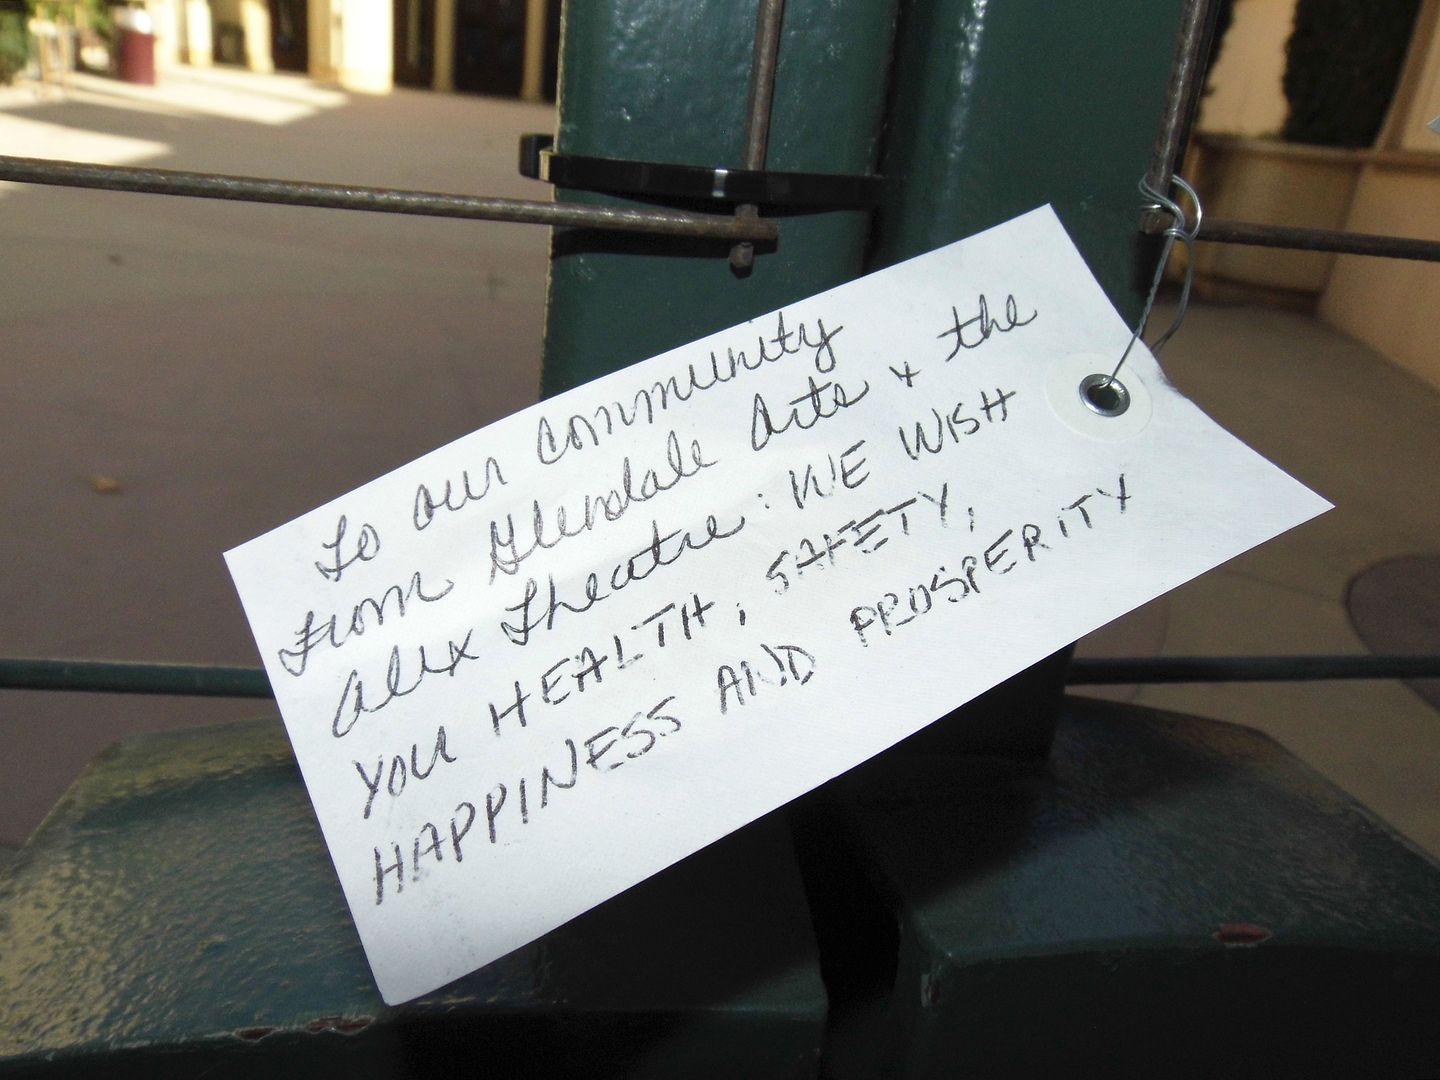 To our community
from Glendale Arts & the
Alex Theatre: WE WISH
YOU HEALTH, SAFETY,
HAPPINESS AND PROSPERITY